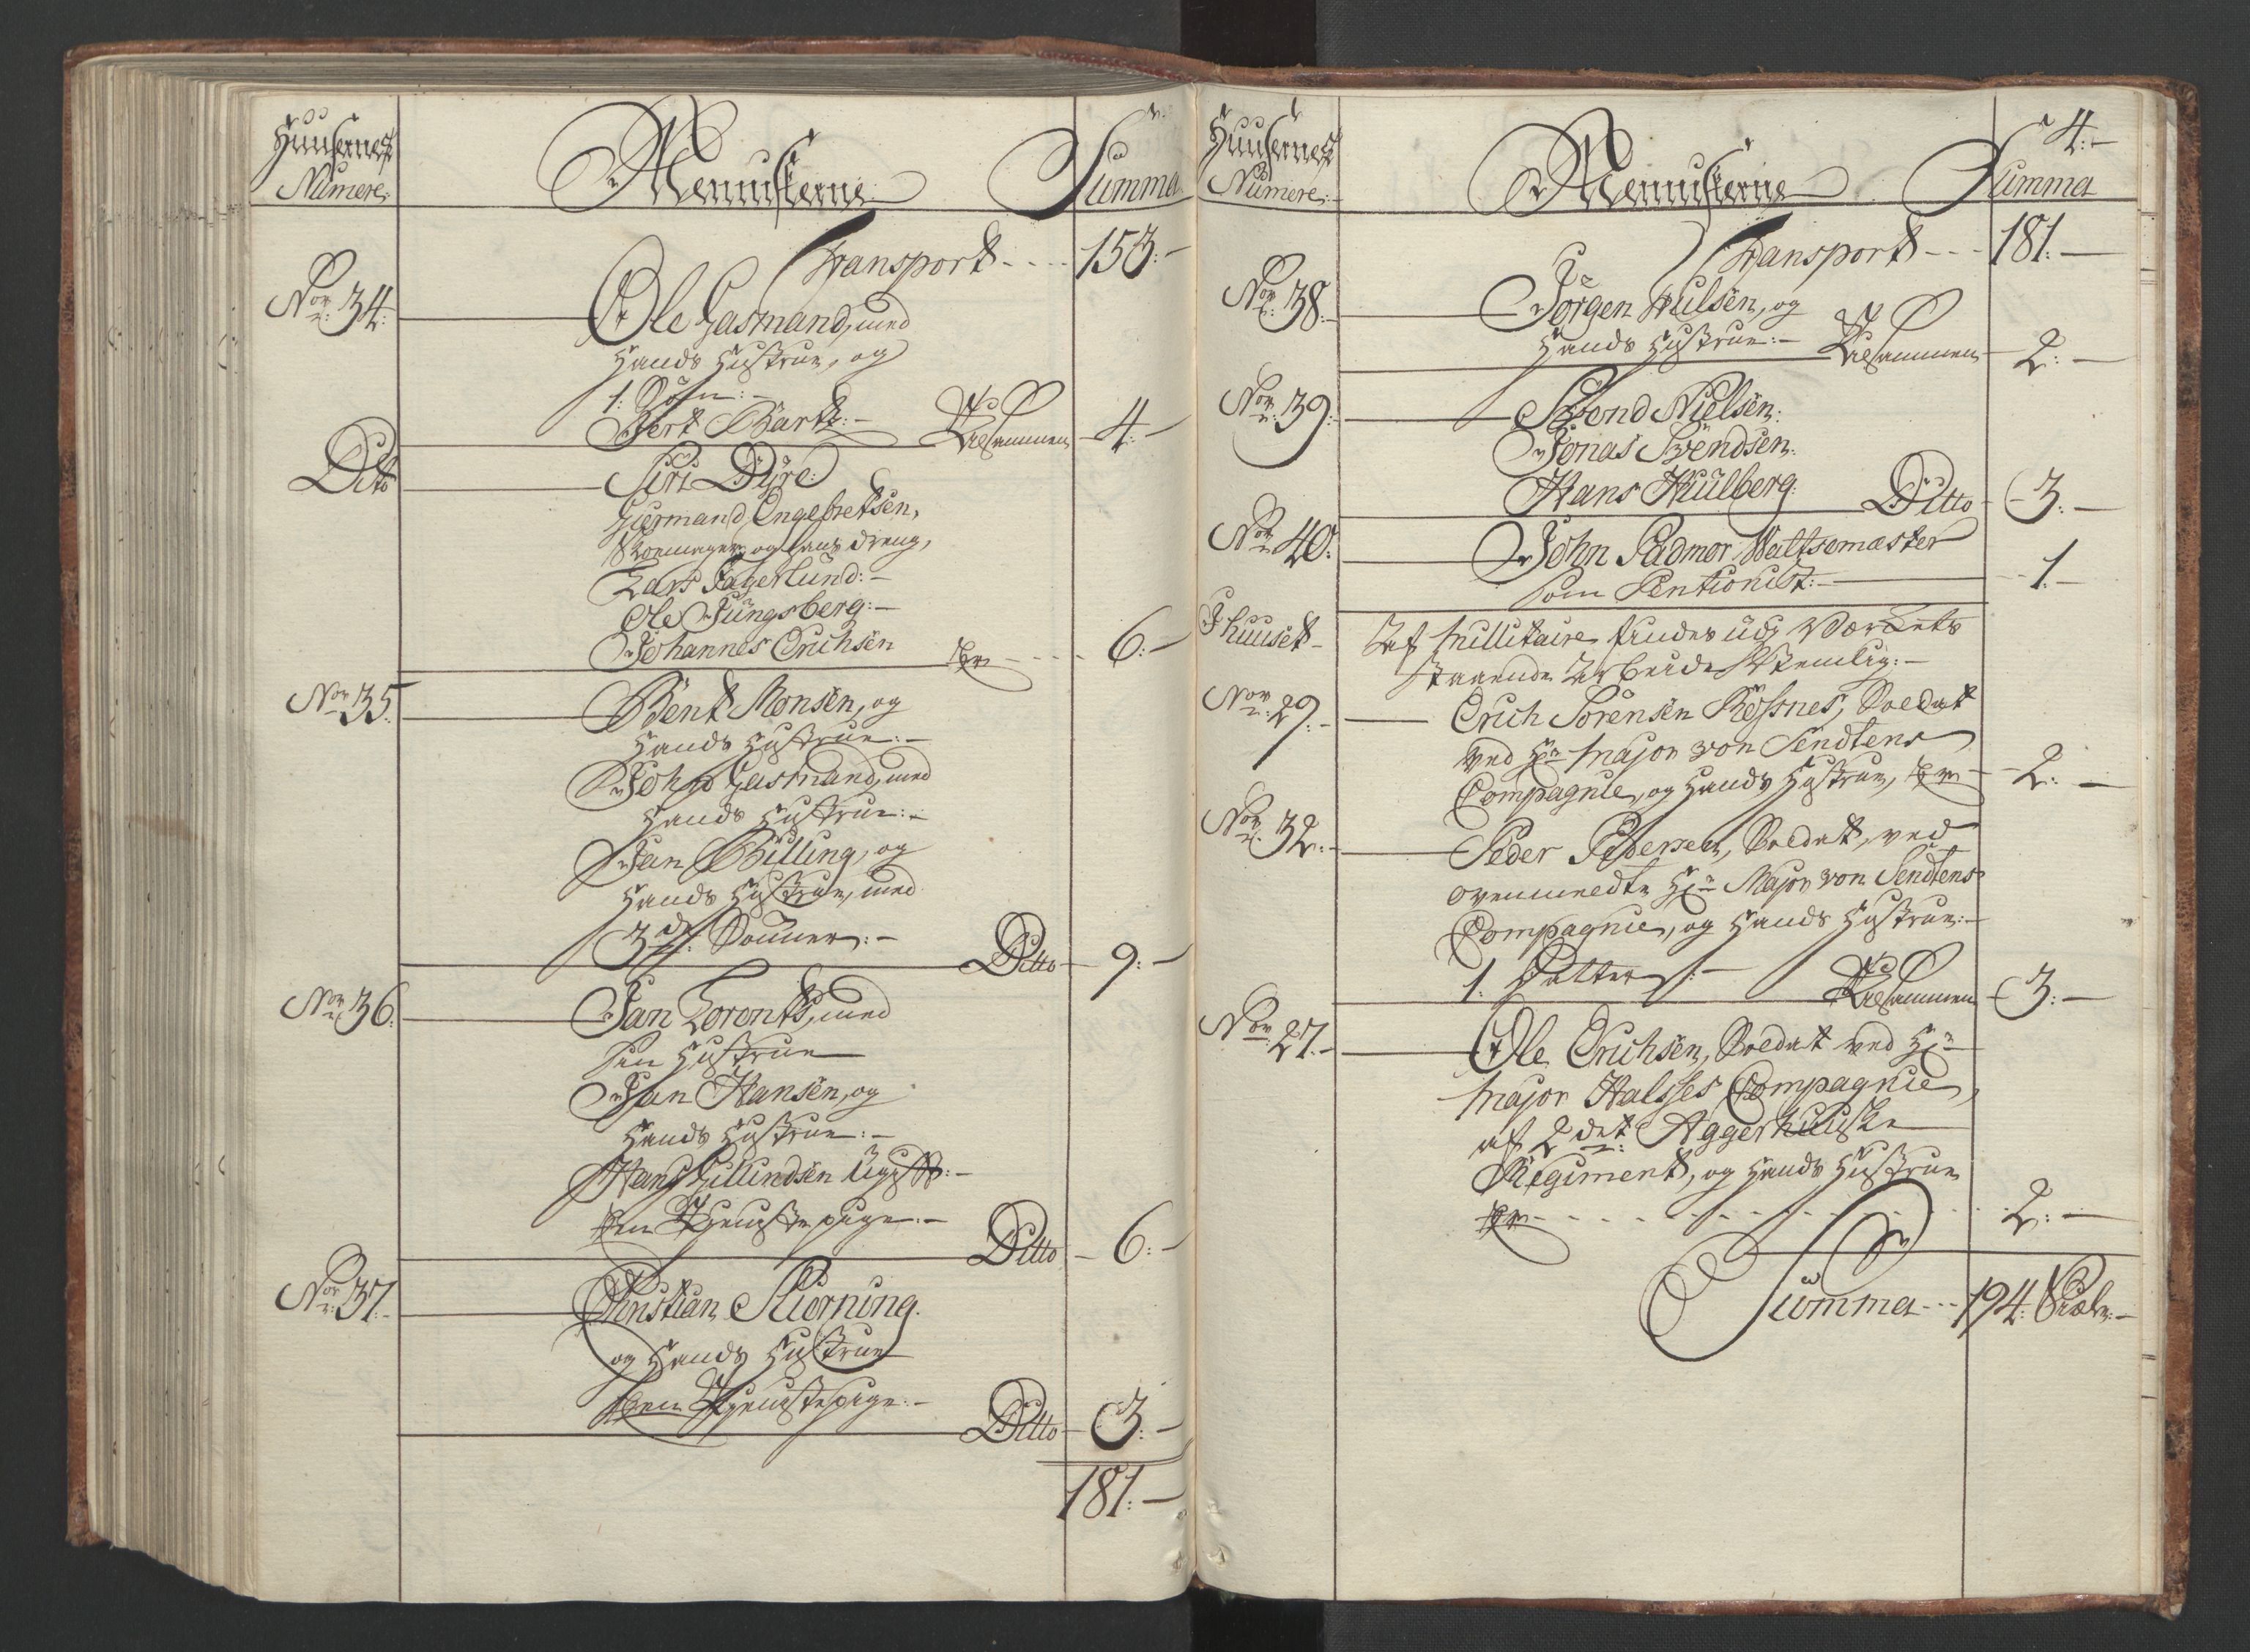 Huusernes
Numere:
Menniskerne:
Summa
Transport - - - - 153:-
No: 34:
Ole Gasmand, med
Hands Hustrue, og
1: Søn:-
Bert Bartz:- Tilsammen 4:-
Dito
Siri Dyre:
Giermand Engebretsen,
Skoemager og hans dreng,
Lars Fagerlund:-
Ole Jungsberg:-
Johannes Erichsen Er - - - - 6:-
No: 35:
Bent Monsen, og
Hands Hustrue:-
John Gasmand, med
Hands Hustrue:-
Jan Billing, og
Hands Hustrue, med
3de: Sønner:- Ditto 9:-
No: 36:
Jan Lorentz, med
sin Hustrue
Jan Hansen, og
Hands Hustrue:-
Hans Gillundsen Ugift:-
Een Tjenistepige:- Ditto - 6:-
No: 37:
Christian Skiorning.
og Hands Hustrue
Een Tjenistepige:- Ditto 3:-
181:-
4:-
Huusernes
Numere:
Menniskerne
Summa
Transport - - - 181:-
No: 38:
Jørgen Hulsen, og
Hands Hustrue:- Tilsammen 2:-
No: 39:
Svend Nielsen:
Jonas Svendsen:
Hans Hulberg: Ditto 3:-
No: 40:
John Padmor Waltsemæster
som Pentionist:- 1:-
I huuset
Af Millitaire findes udj Værkets
staaende Arbeide Nemlig:-
No: 29:-
Erich Sørensen Røssnes, Soldat
ved Hr: Major von Sendtens
Compagnie, og Hands Hustrue, Er - 2:-
No: 32:-
Peder Pedersen, Soldat, ved
ovenmeldte Hr: Major von Sendtens
Compagnie, og Hands Hustrue:-
1: Datter:- Tilsammen 3:-
No: 27:-
Ole Erichsen, Soldat ved Hr:
Major Halsses Compagnie,
af 2det: Aggerhuuske
Regiment, og Hands Hustrue
Er - - - - 2:-
Summa - - - 194: Siæle:-